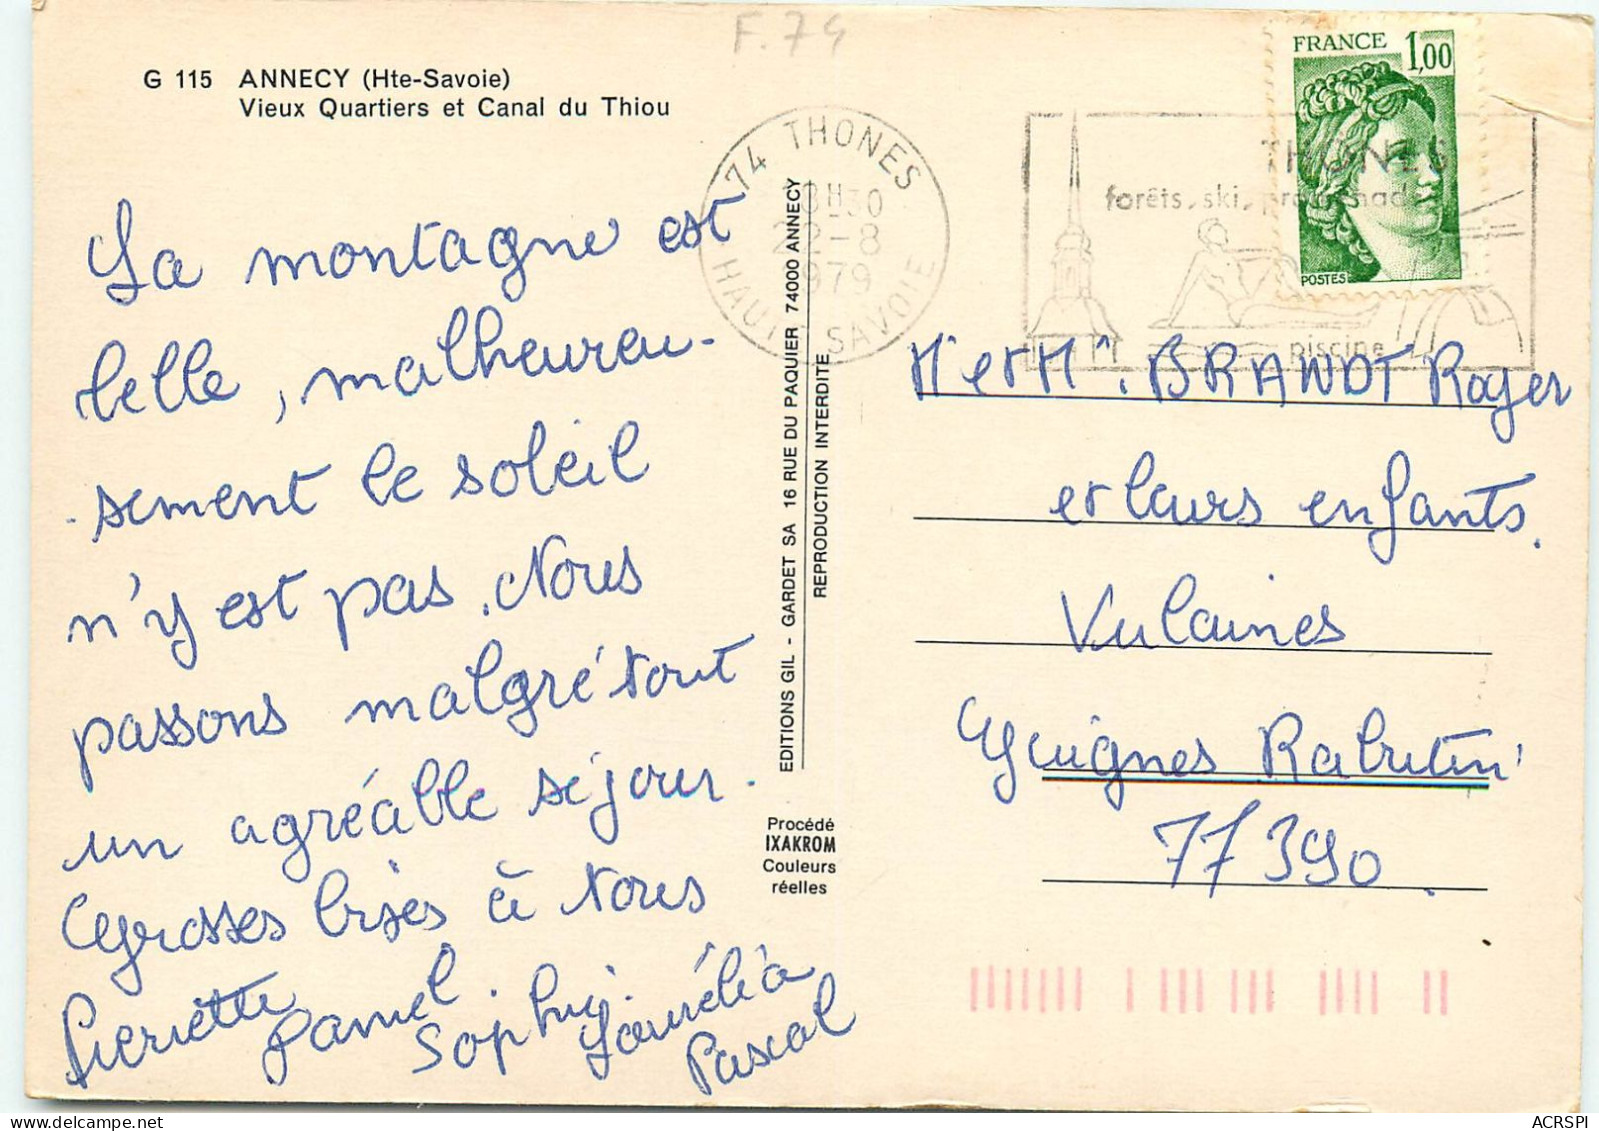 F.74
G 115 ANNECY (Hte-Savoie)
Vieux Quartiers et Canal du Thiou
74 THONES
18H30
22-8
1979
HAUTE SAVOIE
THONES
forêts, ski, promenades
piscine
FRANCE 1,00
POSTES
La montagne est
belle, malheureu-
-sement le soleil
n'y est pas. Nous
passons malgré tout
un agréable séjour.
Grosses bises à tous
Pierrette
Sophie.
Pascal
EDITIONS GIL - GARDET SA 16 RUE DU PAQUIER 74000 ANNECY
REPRODUCTION INTERDITE
Procédé
IXAKROM
Couleurs
réelles
Mr et Me. BRANDT Roger
et leurs enfants.
Vulaines
Guignes Rabutin
77390.
ACRSPI